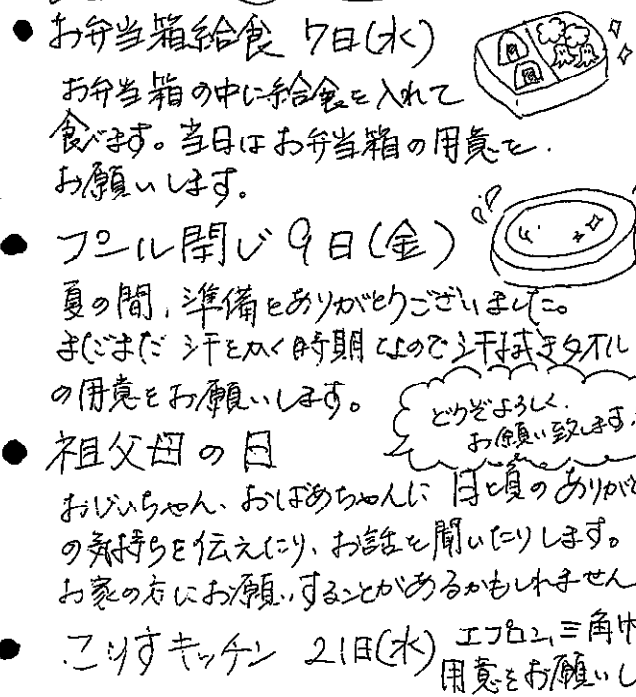 お弁当箱給食 7日(水)
お弁当箱の中に給食を入れて
食べます。当日はお弁当箱の用意を
お願いします。
プール閉じ 9日(金)
夏の間、準備をありがとうございました。
まだまだ汗をかく時期なので汗拭きタオル
の用意をお願いします。
どうぞよろしく
お願い致します。
祖父母の日
おじいちゃん、おばあちゃんに日頃のありがと
の気持ちを伝えたり、お話を聞いたりします。
お家の方にお願いすることがあるかもしれません
こりすキッチン 21日(水) エプロン、三角巾
用意をお願いし